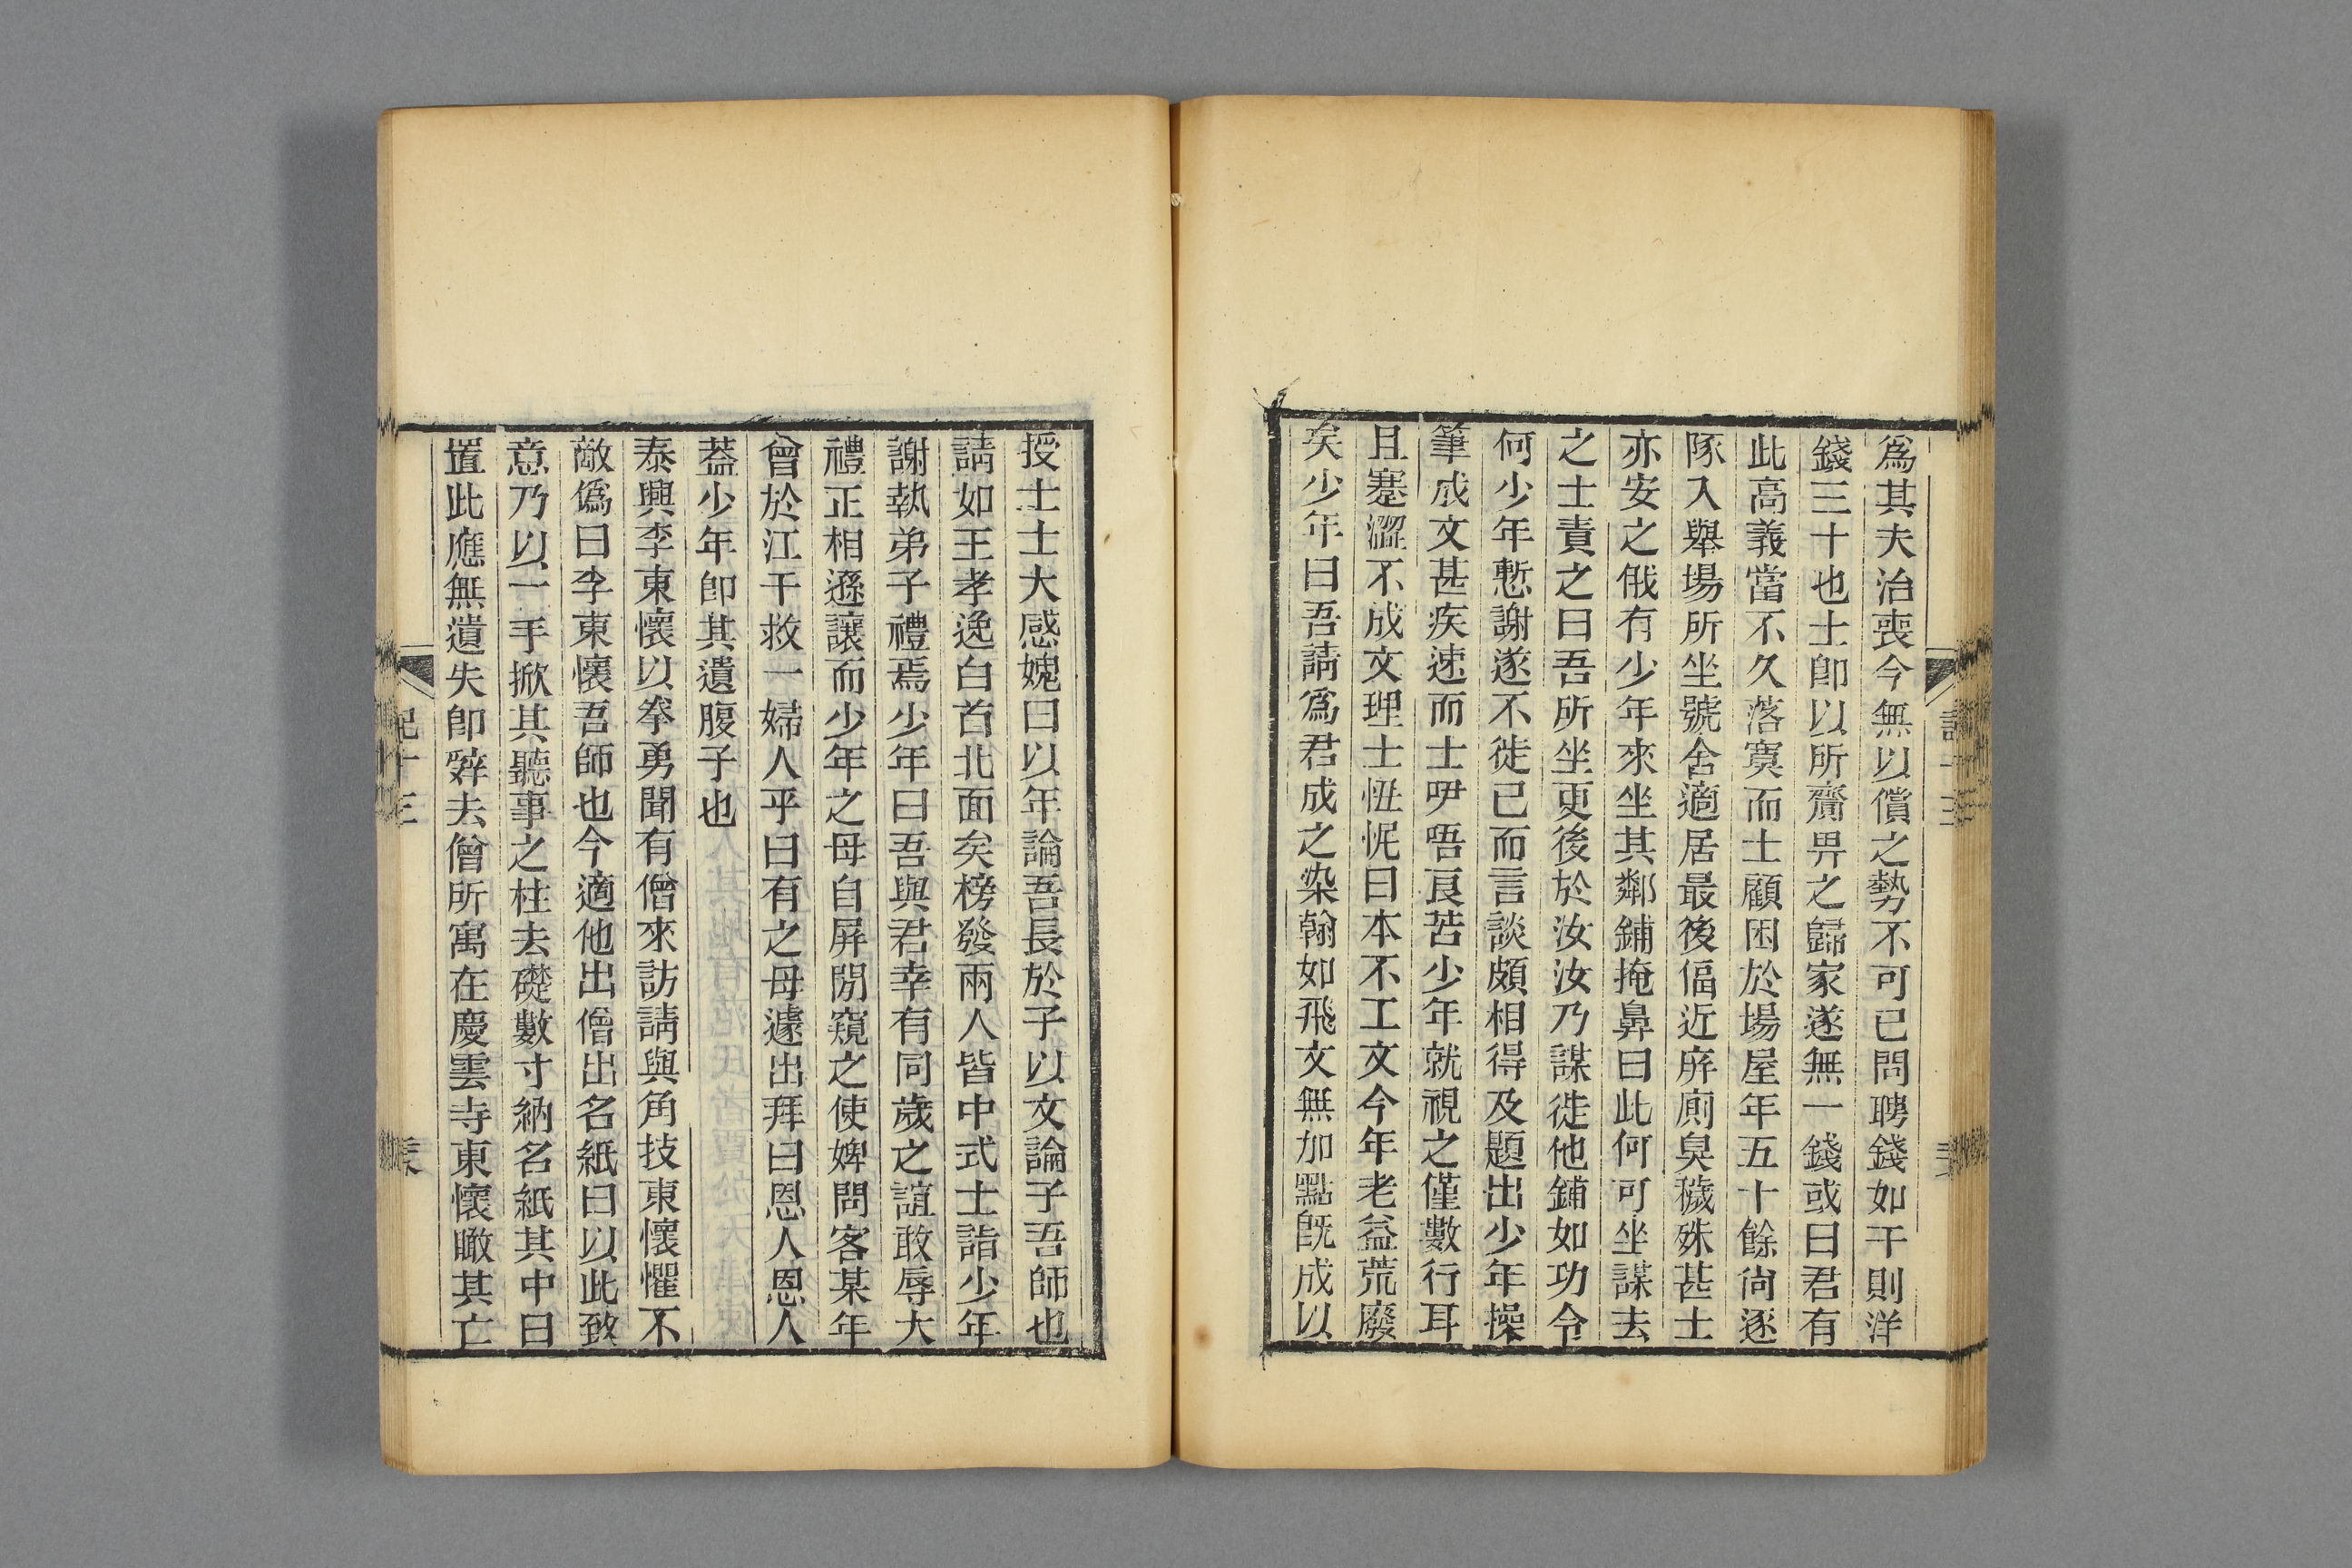 爲其夫治喪今無以償之勢不可已問聘錢如干則洋
錢三十也士卽以所齎畀之歸家遂無一錢或曰君有
此高義當不久落寞而士顧困於場屋年五十餘尙逐
隊入舉場所坐號舍適居最後偪近庰廁臭穢殊甚士
亦安之俄有少年來坐其鄰鋪掩鼻曰此何可坐謀去
之士責之曰吾所坐更後於汝汝乃謀徙他鋪如功令
何少年慙謝遂不徙已而言談頗相得及題出少年操
筆成文甚疾速而士吚唔良苦少年就視之僅數行耳
且蹇澀不成文理士忸怩曰本不工文今年老益荒廢
矣少年曰吾請爲君成之染翰如飛文無加點旣成以
授士士大感媿曰以年論吾長於子以文論子吾師也
請如王孝逸白首北面矣榜發兩人皆中式士詣少年
謝執弟子禮焉少年曰吾與君幸有同歲之誼敢辱大
禮正相遜讓而少年之母自屏閒窺之使婢問客某年
曾於江干救一婦人乎曰有之母遽出拜曰恩人恩人
葢少年卽其遺腹子也
泰興李東懷以拳勇聞有僧來訪請與角技東懷懼不
敵僞曰李東懷吾師也今適他出僧出名紙曰以此致
意乃以一手掀其聽事之柱去礎數寸納名紙其中曰
置此應無遺失卽辭去僧所寓在慶雲寺東懷瞰其亡